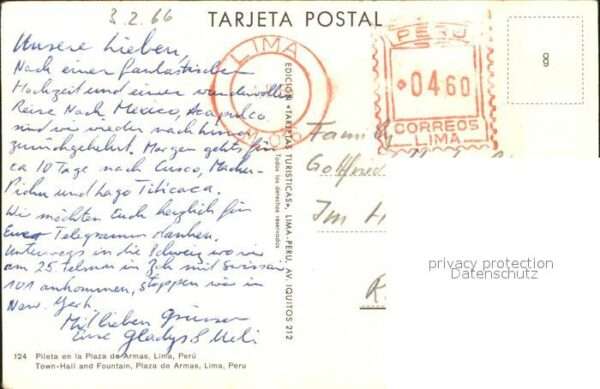 8.2.66
TARJETA POSTAL
Unsere Lieben,
Nach einer fantastischen
Hochzeit und einer wundervollen
Reise Nach Mexico, Acapulco
sind wir wieder nach Lima
zurückgekehrt. Morgen gehts für
ca 10 Tage nach Cusco, Machu-
Pichu und Lago Titicaca.
Wir möchten Euch herzlich für
Euer Telegramm danken.
Unterwegs in die Schweiz wo wir
am 25. Februar in Zch mit Swissair
101 ankommen, stoppen wir in
New. York.
Mit lieben Grüssen
Eure Gladys & Ueli
124 Pileta en la Plaza de Armas, Lima, Perú
Town-Hall and Fountain, Plaza de Armas, Lima, Peru
EDICION «TARJETAS TURISTICAS», LIMA-PERU, AV. IQUITOS 212
Todos los derechos reservados
LIMA
PERU
0460
CORREOS
LIMA
8
Famil
Im H
privacy protection
Datenschutz